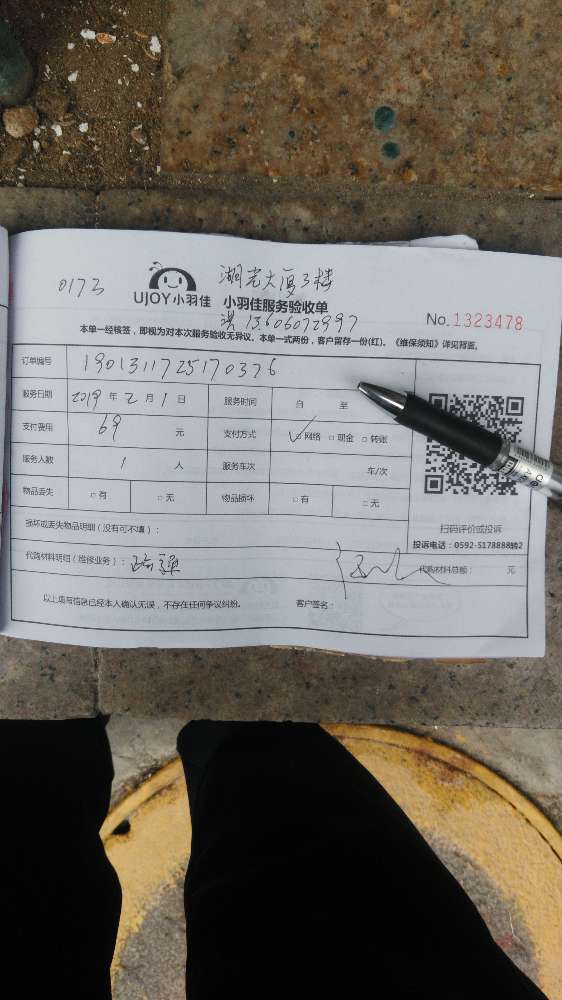 0173
湖光大厦3楼
UJOY小羽佳 小羽佳服务验收单
洪 13606072997
No.1323478
本单一经核签，即视为对本次服务验收无异议。本单一式两份，客户留存一份(红)。《维保须知》详见背面。
订单编号 1901311725170376
服务日期 2019 年 2 月 1 日 服务时间 自 至
支付费用 69 元 支付方式 ✓网络 □现金 □转账
服务人数 1 人 服务车次 车/次
物品丢失 □有 □无 物品损坏 □有 □无
扫码评价或投诉
投诉电话：0592-5178888转2
损坏或丢失物品明细（没有可不填）：
代购材料明细（维修业务）： 代购材料总额： 元
以上填写信息已经本人确认无误，不存在任何争议纠纷。 客户签名：